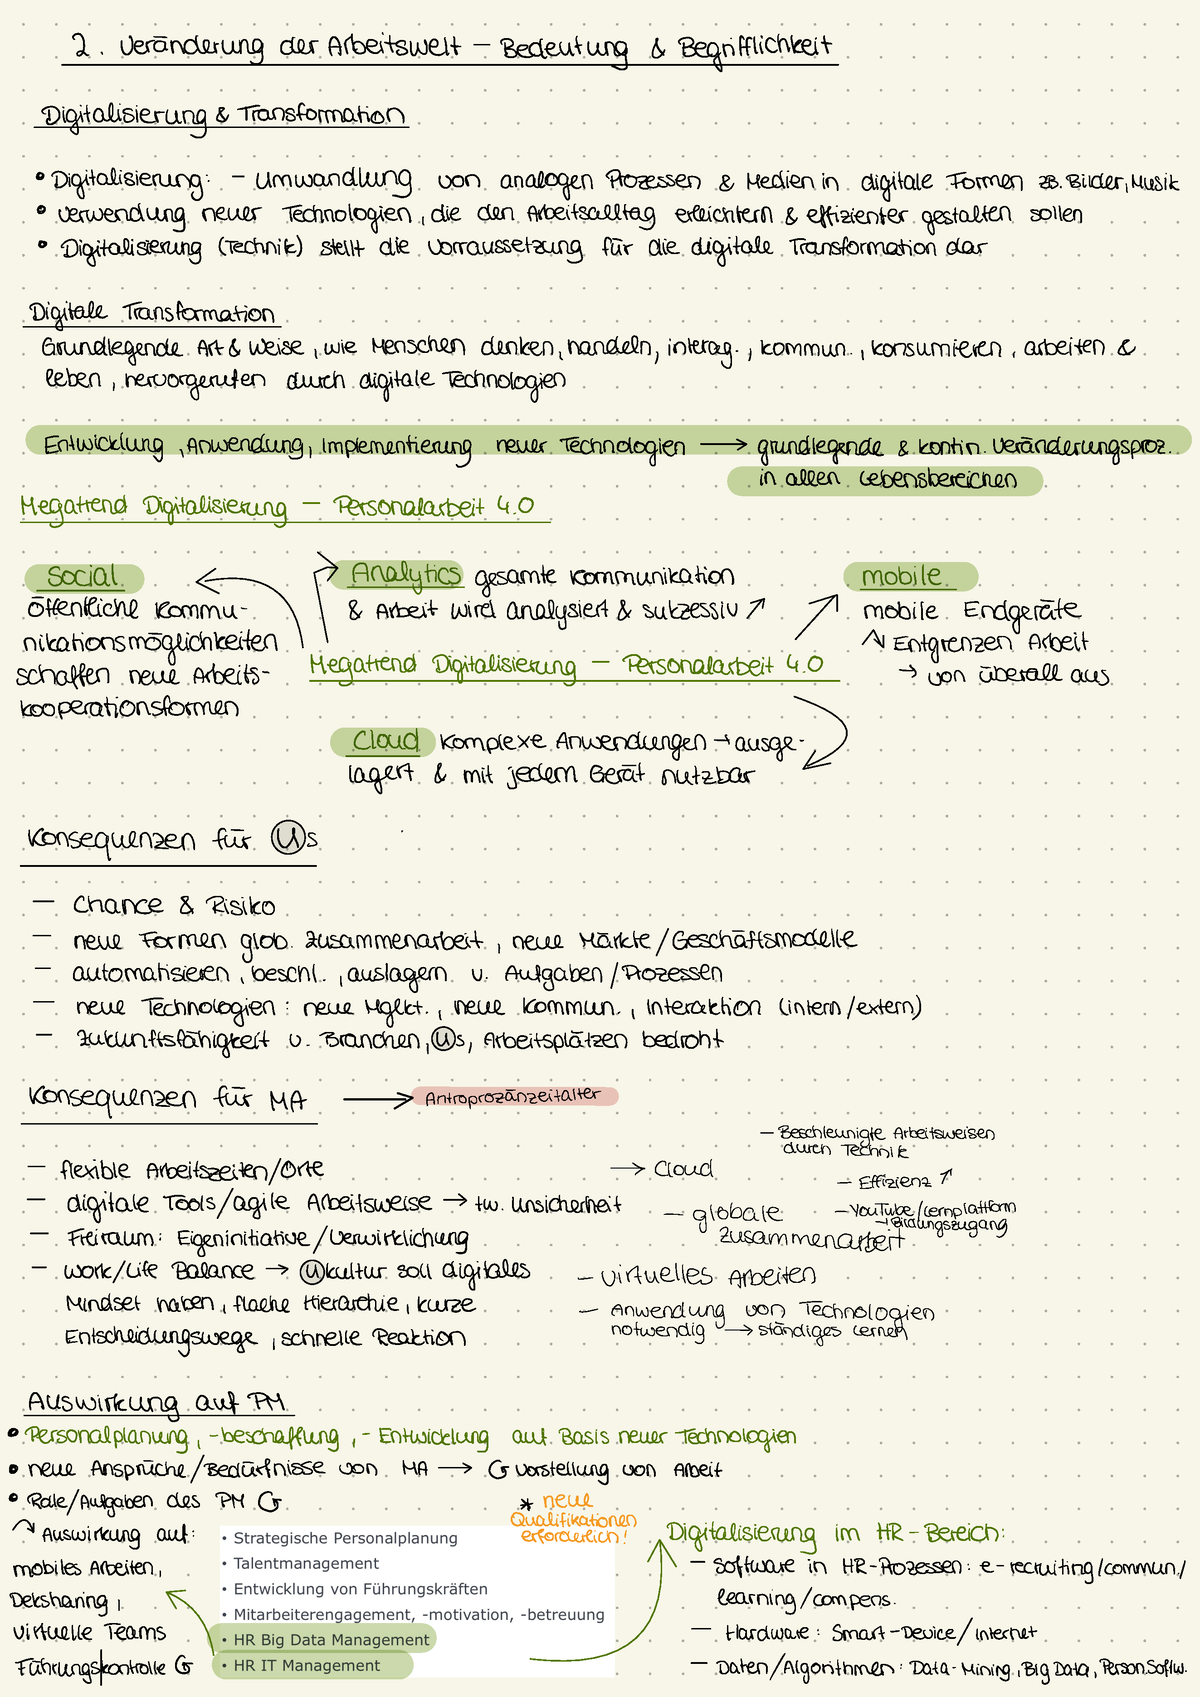 2. Veränderung der Arbeitswelt – Bedeutung & Begrifflichkeit
Digitalisierung & Transformation
• Digitalisierung: – Umwandlung von analogen Prozessen & Medien in digitale Formen zB. Bilder, Musik
• Verwendung neuer Technologien, die den Arbeitsalltag erleichtern & effizienter gestalten sollen
• Digitalisierung (Technik) stellt die Vorraussetzung für die digitale Transformation dar
Digitale Transformation
Grundlegende Art & Weise, wie Menschen denken, handeln, interag., kommun., konsumieren, arbeiten &
leben, hervorgerufen durch digitale Technologien
Entwicklung, Anwendung, Implementierung neuer Technologien → grundlegende & kontin. Veränderungsproz.
in allen Lebensbereichen
Megatrend Digitalisierung – Personalarbeit 4.0
Social
öffentliche Kommu-
nikationsmöglichkeiten
schaffen neue Arbeits-
kooperationsformen
Analytics gesamte Kommunikation
& Arbeit wird analysiert & sukzessiv ↗
mobile
mobile Endgeräte
↷ Entgrenzen Arbeit
→ von überall aus
Megatrend Digitalisierung – Personalarbeit 4.0
Cloud komplexe Anwendungen → ausge-
lagert & mit jedem Gerät nutzbar
Konsequenzen für Ⓤs
– Chance & Risiko
– neue Formen glob. Zusammenarbeit, neue Märkte/Geschäftsmodelle
– automatisieren, beschl., auslagern v. Aufgaben/Prozessen
– neue Technologien: neue Mglkt., neue Kommun., Interaktion (intern/extern)
– Zukunftsfähigkeit v. Branchen, Ⓤs, Arbeitsplätzen bedroht
Konsequenzen für MA → Antroprozänzeitalter
– flexible Arbeitszeiten/Orte
– digitale Tools/agile Arbeitsweise → tw. Unsicherheit
– Freiraum: Eigeninitiative/Verwirklichung
– Work/Life Balance → Ⓤkultur soll digitales
Mindset haben, flache Hierarchie, kurze
Entscheidungswege, schnelle Reaktion
– Beschleunigte Arbeitsweisen
durch Technik
→ Cloud
– Effizienz ↗
– YouTube/Lernplattform
→ Bildungszugang
– globale
Zusammenarbeit
– virtuelles Arbeiten
– Anwendung von Technologien
notwendig → ständiges Lernen
Auswirkung auf PM
• Personalplanung, -beschaffung, - Entwicklung auf Basis neuer Technologien
• neue Ansprüche/Bedürfnisse von MA → Vorstellung von Arbeit
• Rolle/Aufgaben des PM
↷ Auswirkung auf:
mobiles Arbeiten,
Deksharing,
virtuelle Teams
Führungskontrolle
* neue
Qualifikationen
erforderlich!
• Strategische Personalplanung
• Talentmanagement
• Entwicklung von Führungskräften
• Mitarbeiterengagement, -motivation, -betreuung
• HR Big Data Management
• HR IT Management
Digitalisierung im HR-Bereich:
– Software in HR-Prozessen: e-recruiting/commun./
learning/compens.
– Hardware: Smart-Device/Internet
– Daten/Algorithmen: Data-Mining, Big Data, Person.Softw.